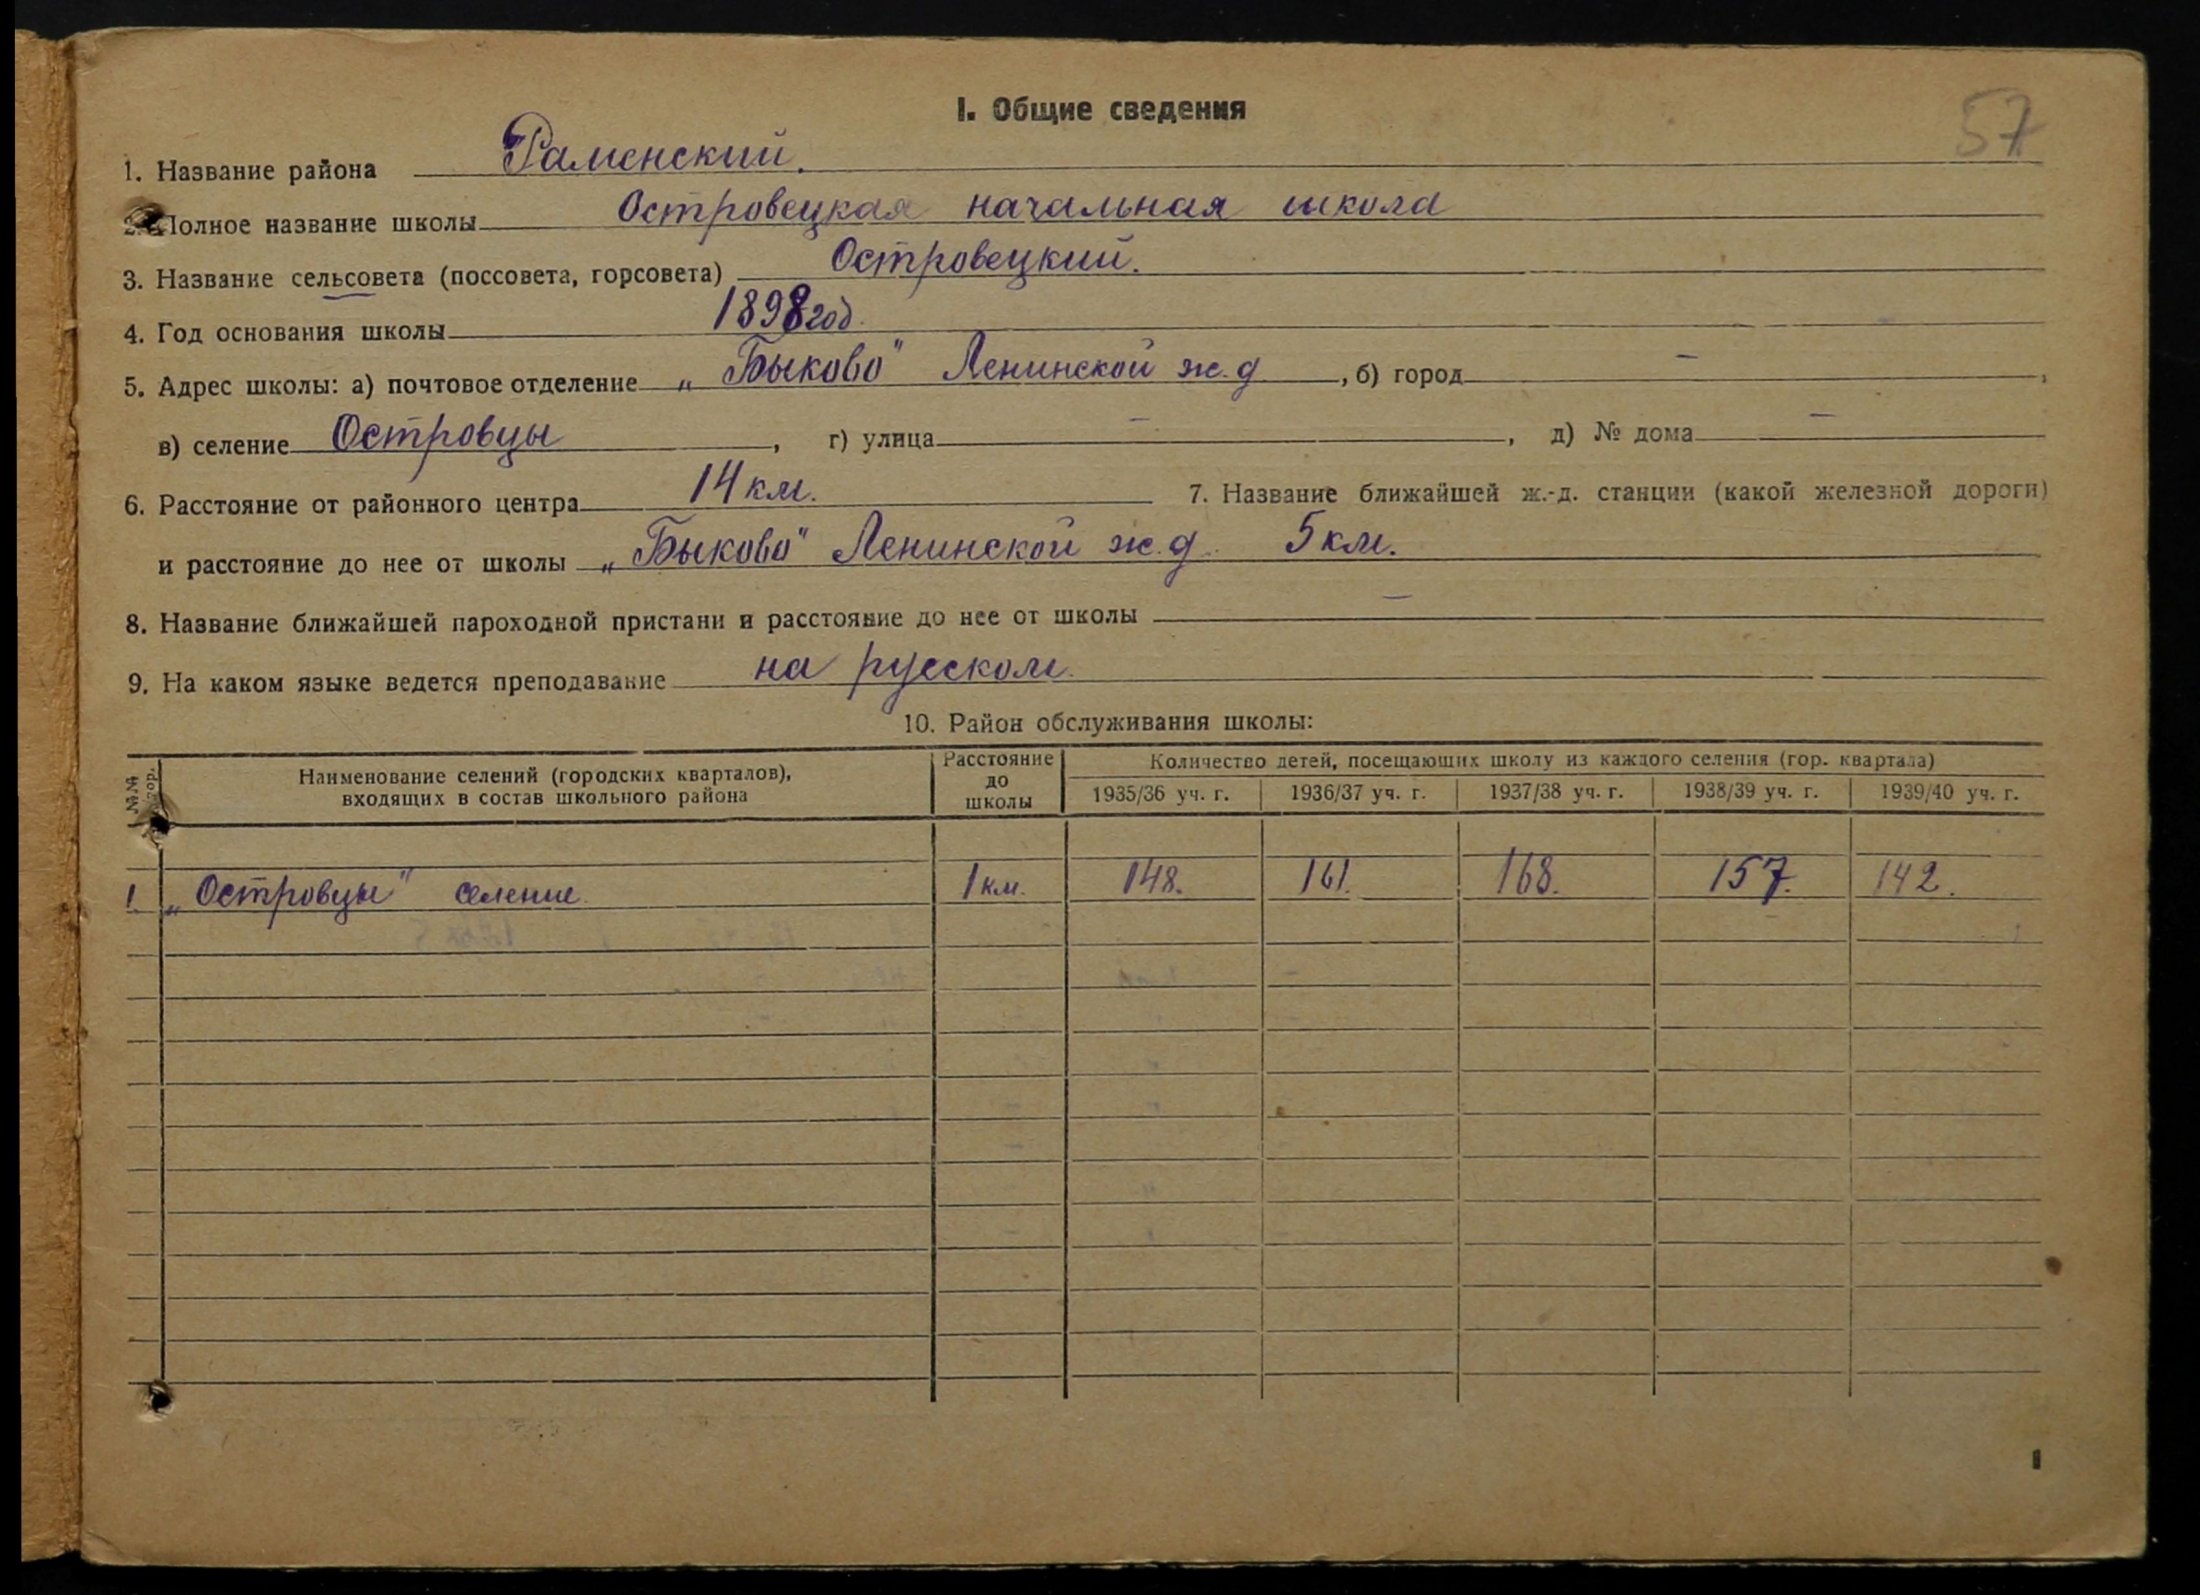 57
I. Общие сведения
1. Название района Раменский.
2. Полное название школы Островецкая начальная школа
3. Название сельсовета (поссовета, горсовета) Островецкий.
4. Год основания школы 1898 год.
5. Адрес школы: а) почтовое отделение „Быково" Ленинской ж.д , б) город — ,
в) селение Островцы , г) улица — , д) № дома —
6. Расстояние от районного центра 14 км. 7. Название ближайшей ж.-д. станции (какой железной дороги)
и расстояние до нее от школы „Быково" Ленинской ж.д. 5 км.
8. Название ближайшей пароходной пристани и расстояние до нее от школы —
9. На каком языке ведется преподавание на русском.
10. Район обслуживания школы:
№№ Наименование селений (городских кварталов), входящих в состав школьного района Расстояние до школы Количество детей, посещающих школу из каждого селения (гор. квартала)
1935/36 уч. г. 1936/37 уч. г. 1937/38 уч. г. 1938/39 уч. г. 1939/40 уч. г.
1. „Островцы" селение. 1 км. 148. 161. 168. 157. 142.
1